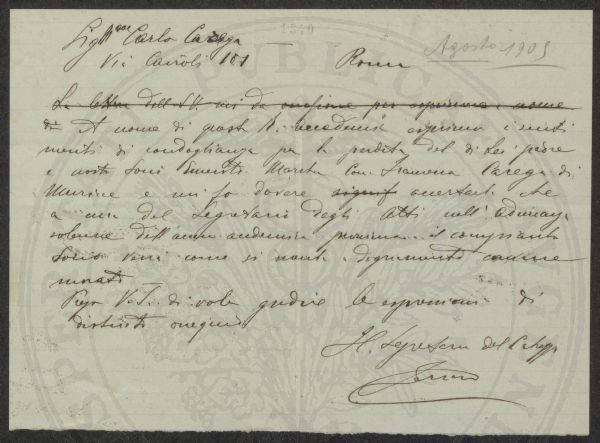 1540
Agosto 1905
Carlo Carega
Via Cairoli 101 Roma
La lettera dell S.V. mi da occasione per esprimere a nome
di A nome di questa R. Accademia esprimo i senti
menti di condoglianza per la perdita del di Lei padre
e nostro Socio Emerito March. Com. Francesco Carega di
Muricce e mi fo dovere avvertarla che
a cura del Segretario degli Atti nell'adunanza
solenne dell'anno accademico prossimo il compianto
Socio verrà come si merita degnamente comme
morato
Prego V.S. di voler gradire le espressioni di
distinti ossequi
Il Segretario del